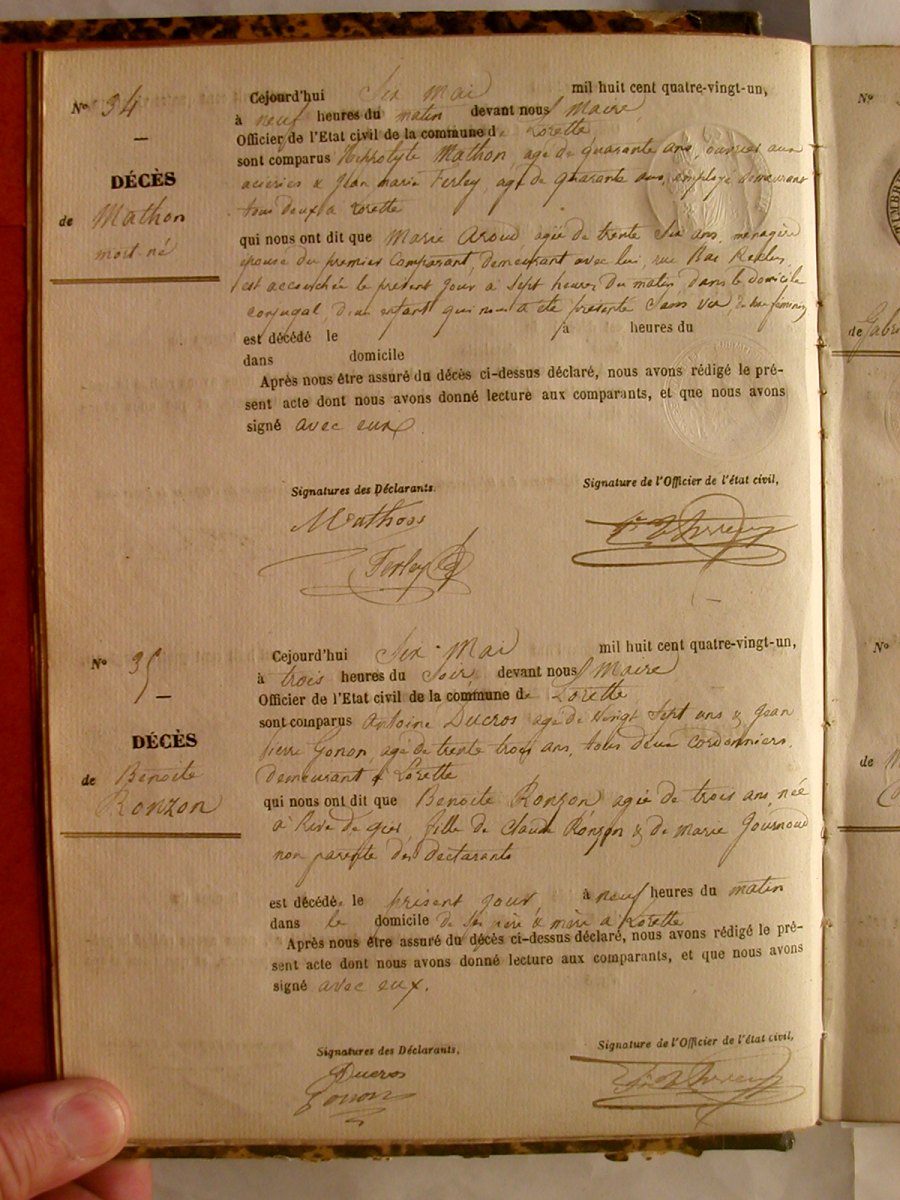 Nº 34
DÉCÈS
de Mathon
mort-né
Cejourd'hui Six Mai mil huit cent quatre-vingt-un,
à neuf heures du matin devant nous Maire
Officier de l'Etat civil de la commune de Lorette
sont comparus Hippolyte Mathon, agé de quarante ans, ouvrier aux
aciéries & Jean marie Ferley, agé de quarante ans, employé demeurant
tous deux à Lorette
qui nous ont dit que Marie Aroud, agée de trente Six ans, ménagère
épouse du premier Comparant, demeurant avec lui, rue
est accouchée le présent jour à Sept heures du matin, dans le domicile
conjugal, d'un enfant qui nous a été présenté Sans vie, de sexe féminin
est décédé le à heures du
dans domicile
Après nous être assuré du décès ci-dessus déclaré, nous avons rédigé le pré-
sent acte dont nous avons donné lecture aux comparants, et que nous avons
signé avec eux.
Signatures des Déclarants.
Signature de l'Officier de l'état civil,
Mathon
Ferley
Nº 35
DÉCÈS
de Benoite
Ronzon
Cejourd'hui Six Mai mil huit cent quatre-vingt-un,
à trois heures du Soir devant nous Maire
Officier de l'Etat civil de la commune de Lorette
sont comparus Antoine Ducros agé de Vingt Sept ans & Jean
Pierre Gonon, agé de trente trois ans, tous deux Cordonniers,
demeurant à Lorette
qui nous ont dit que Benoite Ronzon agée de trois ans, née
à Rive de gier, fille de Claude Ronzon & de Marie Journoud
non parente des Déclarants
est décédée le présent jour, à neuf heures du matin
dans le domicile de ses père & mère à Lorette
Après nous être assuré du décès ci-dessus déclaré, nous avons rédigé le pré-
sent acte dont nous avons donné lecture aux comparants, et que nous avons
signé avec eux.
Signatures des Déclarants,
Signature de l'Officier de l'état civil,
Ducros
Gonon
Nº
de Gabri
Nº
de